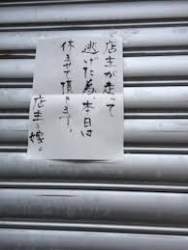 店主が走って
逃げた為、本日は
休ませて頂きます。
店主の嫁